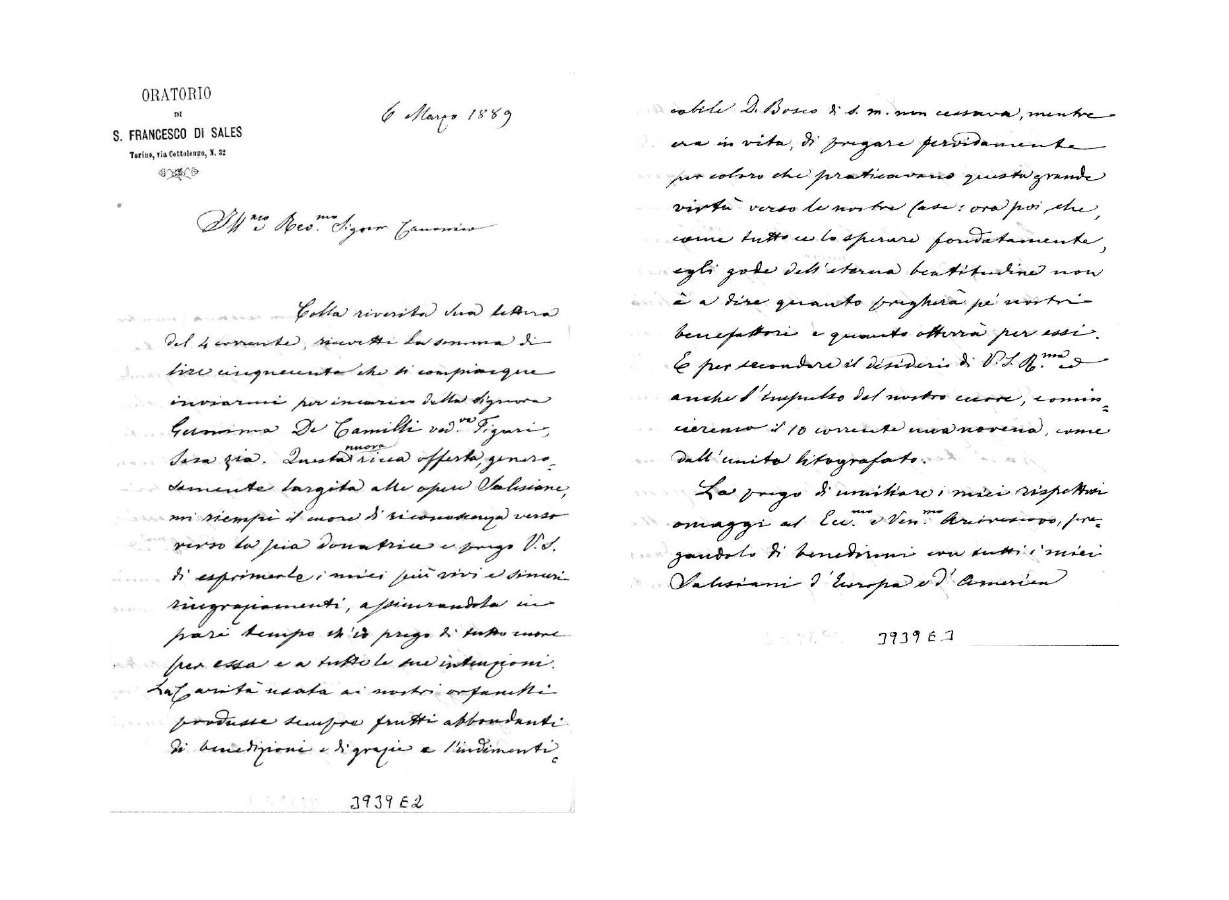 ORATORIO
DI
S. FRANCESCO DI SALES
Torino, via Cottolengo, N. 32
6 Marzo 1889
Ill.mo e Rev.mo Signor Canonico
Colla riverita Sua lettera
del 4 corrente, ricevetti la somma di
lire cinquecento che si compiacque
inviarmi per incarico della Signora
De Camilli ved.va Figari,
Sua zia. Questa nuova ricca offerta, genero=
samente largita alle opere Salesiane,
mi riempì il cuore di riconoscenza verso
verso la pia donatrice e prego V. S.
di esprimerle i miei più vivi e sinceri
ringraziamenti, assicurandola in
pari tempo ch'io prego di tutto cuore
per essa e a tutte le sue intenzioni.
La Carità usata ai nostri orfanelli
produsse sempre frutti abbondanti
di benedizioni e di grazie e l'indimenti=
3939 E2
cabile D. Bosco di s. m. non cessava, mentre
era in vita, di pregare fervidamente
per coloro che praticavano questa grande
virtù verso le nostre Case: ora poi che,
come tutto ce lo sperare fondatamente,
egli gode dell'eterna beatitudine non
è a dire quanto pregherà pe' nostri
benefattori e quanto otterrà per essi.
E per secondare il desiderio di V. S. R.ma ed
anche l'impulso del nostro cuore, comin=
cieremo il 10 corrente una novena, come
dall'unito litografato.
La prego di umiliare i miei rispettosi
omaggi al Ecc.mo e Ven.mo Arcivescovo, pre=
gandolo di benedirmi con tutti i miei
Salesiani d'Europa e d'America
3939 E3